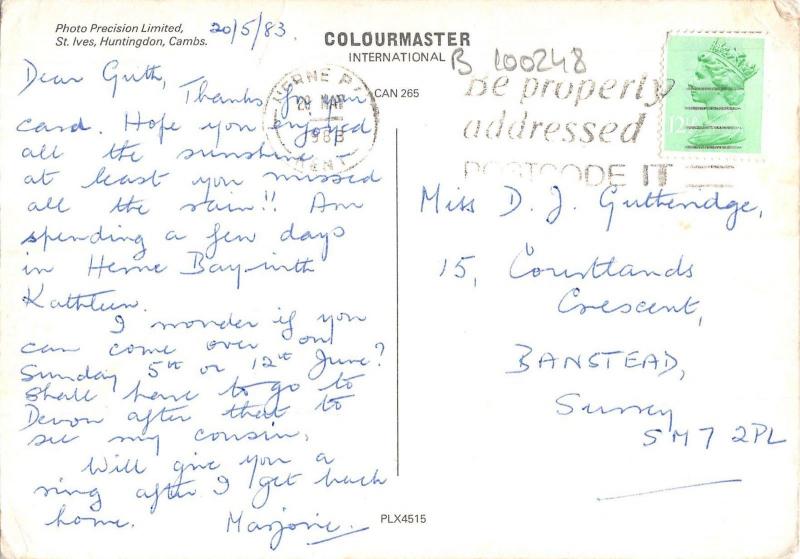 Photo Precision Limited,
St. Ives, Huntingdon, Cambs.
20/5/83.
COLOURMASTER
INTERNATIONAL
CAN 265
B 100248
Be properly
addressed
POSTCODE IT
12½P
HERNE BAY
KENT
Dear Guth,
Thanks for your
card. Hope you enjoyed
all the sunshine -
at least you missed
all the rain!! Am
spending a few days
in Herne Bay with
Kathleen.
I wonder if you
can come over on
Sunday 5th or 12th June?
Shall have to go to
Devon after that to
see my cousin.
Will give you a
ring after I get back
home. Marjorie.
Miss D. J. Gutteridge,
15, Courtlands
Crescent,
BANSTEAD,
Surrey
SM7 2PL
PLX4515